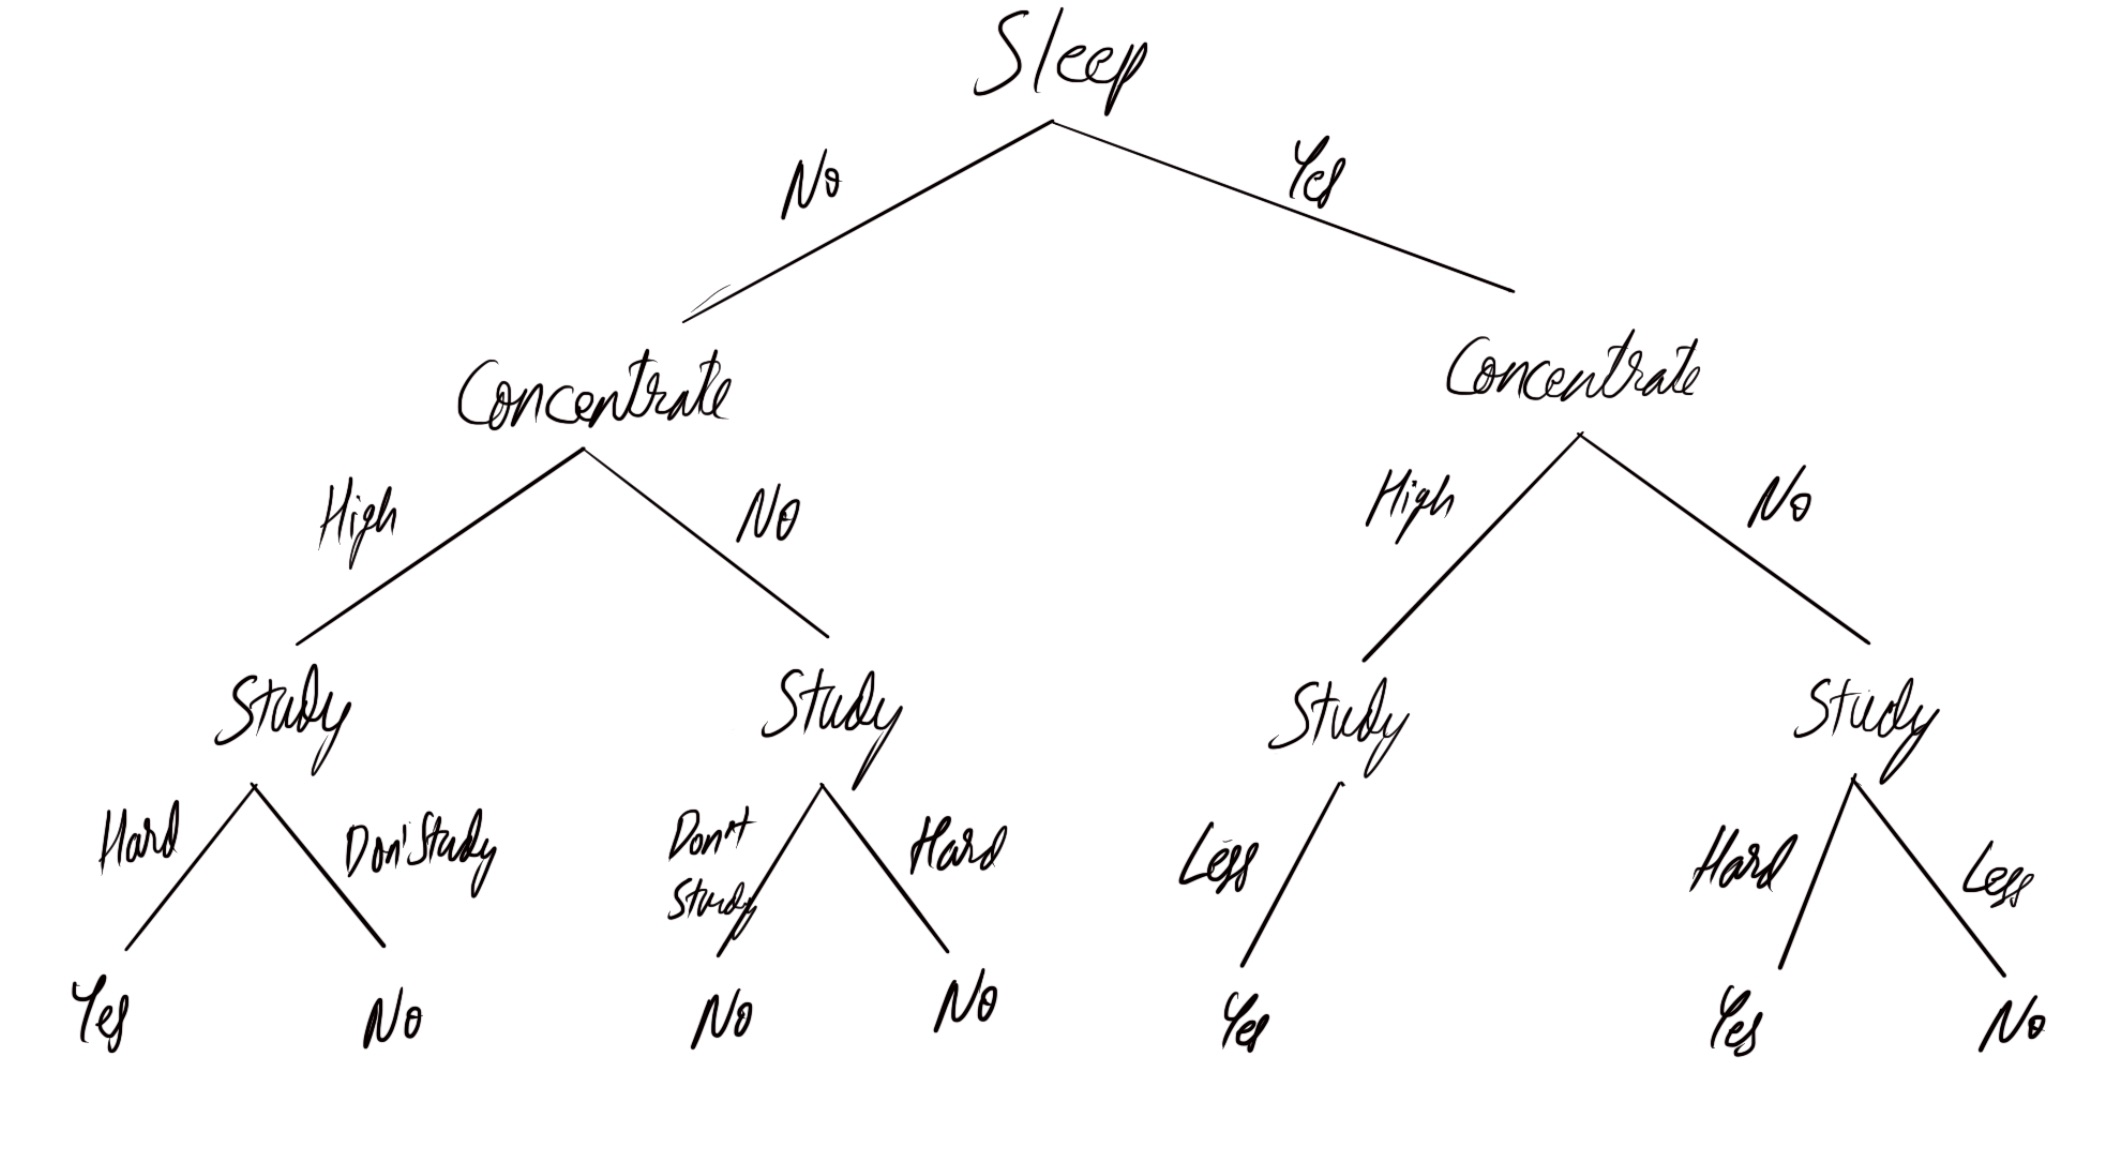 Sleep
No
Yes
Concentrate
Concentrate
High
No
High
No
Study
Study
Study
Study
Hard
Don'Study
Don't
Study
Hard
Less
Hard
Less
Yes
No
No
No
Yes
Yes
No